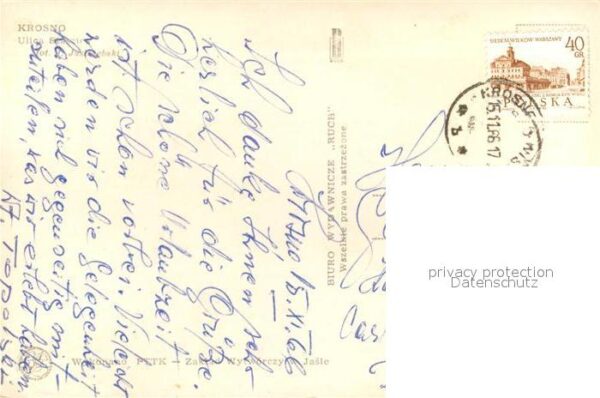 KROSNO
Ulica
Fot.
BIURO WYDAWNICZE „RUCH”
Wszelkie prawa zastrzeżone
Wykonano PTTK — Zakład Wytwórczy w Jaśle
SIEDEM WIEKÓW WARSZAWY
40
GR
POLSKA
KROSNO
15.11.66.17
Krosno 15.XI.66
Ich danke Ihnen sehr
herzlich für die Grüße.
Die schöne Urlaubzeit
ist schon vorbei. Vielleicht
werden wir die Gelegenheit
haben und gegenseitig mit-
zuteilen, was wir erlebt haben.
privacy protection
Datenschutz